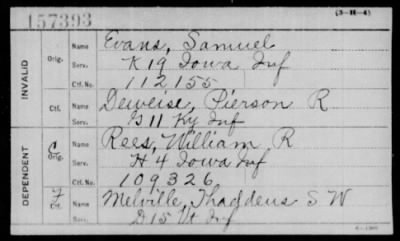 157393
(3-H-4)
INVALID
Orig. Name Evans, Samuel
Serv. K 19 Iowa Inf
Ctf. No. 112155
Ctf. Name Deweise, Pierson R
Serv. G 11 Ky Inf
DEPENDENT
C Orig. Name Rees, William R
Serv. H 4 Iowa Inf
Ctf. No. 109326
Name Melville, Thaddeus S W
Serv. D 15 Vt Inf